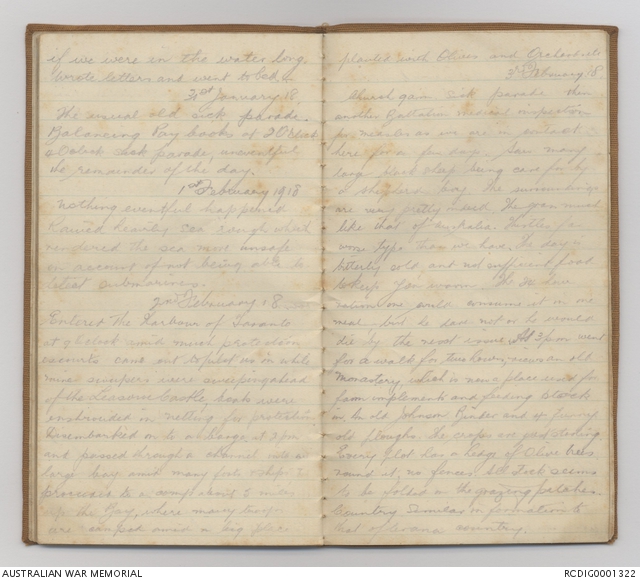 if we were in the water long.
Wrote letters and went to bed.
31st January 18
The usual old sick parade.
Balancing Pay books at 2 O'clock
O'clock Sick parade, uneventful
the remainder of the day.
1st February 1918
Nothing eventful happened
Rained heavily sea rough which
rendered the sea more unsafe
on account of not being able to
detect submarines.
2nd February 18
Entered the Harbour of Taranto
at 9 o'clock amid much protection
escorts came out to pilot us in while
mine sweepers were sweeping ahead
of the boats were
in netting for protection
Disembarked on to a barge at 2 pm
and passed through a channel into a
large bay amid many forts & ships
proceeded to a camp about 2 miles
up the Bay, where many troops
are camped amid a big place
planted with Olives and Orchards etc
3rd February 18
Church gain sick parade then
another Battalion medical inspection
for measles as we are in contact
here for a few days. Saw many
long sheep being cared for by
a shepherd boy. The surroundings
are very pretty indeed. The grass much
like that of Australia. Thistles far
worse type than we have. The day is
bitterly cold and not sufficient food
to keep you warm. The
one could consume it in one
meal but he dare not or he would
die by the next issue. At 3 pm went
for a walk for two hours, saw an old
monastery which is now a place used for
farm implements and feeding stock
in. An old Johnson Binder and
old ploughs. The crops are just starting
Every plot has a hedge of Olive trees
round it, no fences. Live Stock seems
to be folded in the grazing patches.
Country similar in formation to
that of country.
AUSTRALIAN WAR MEMORIAL
RCDIG0001322